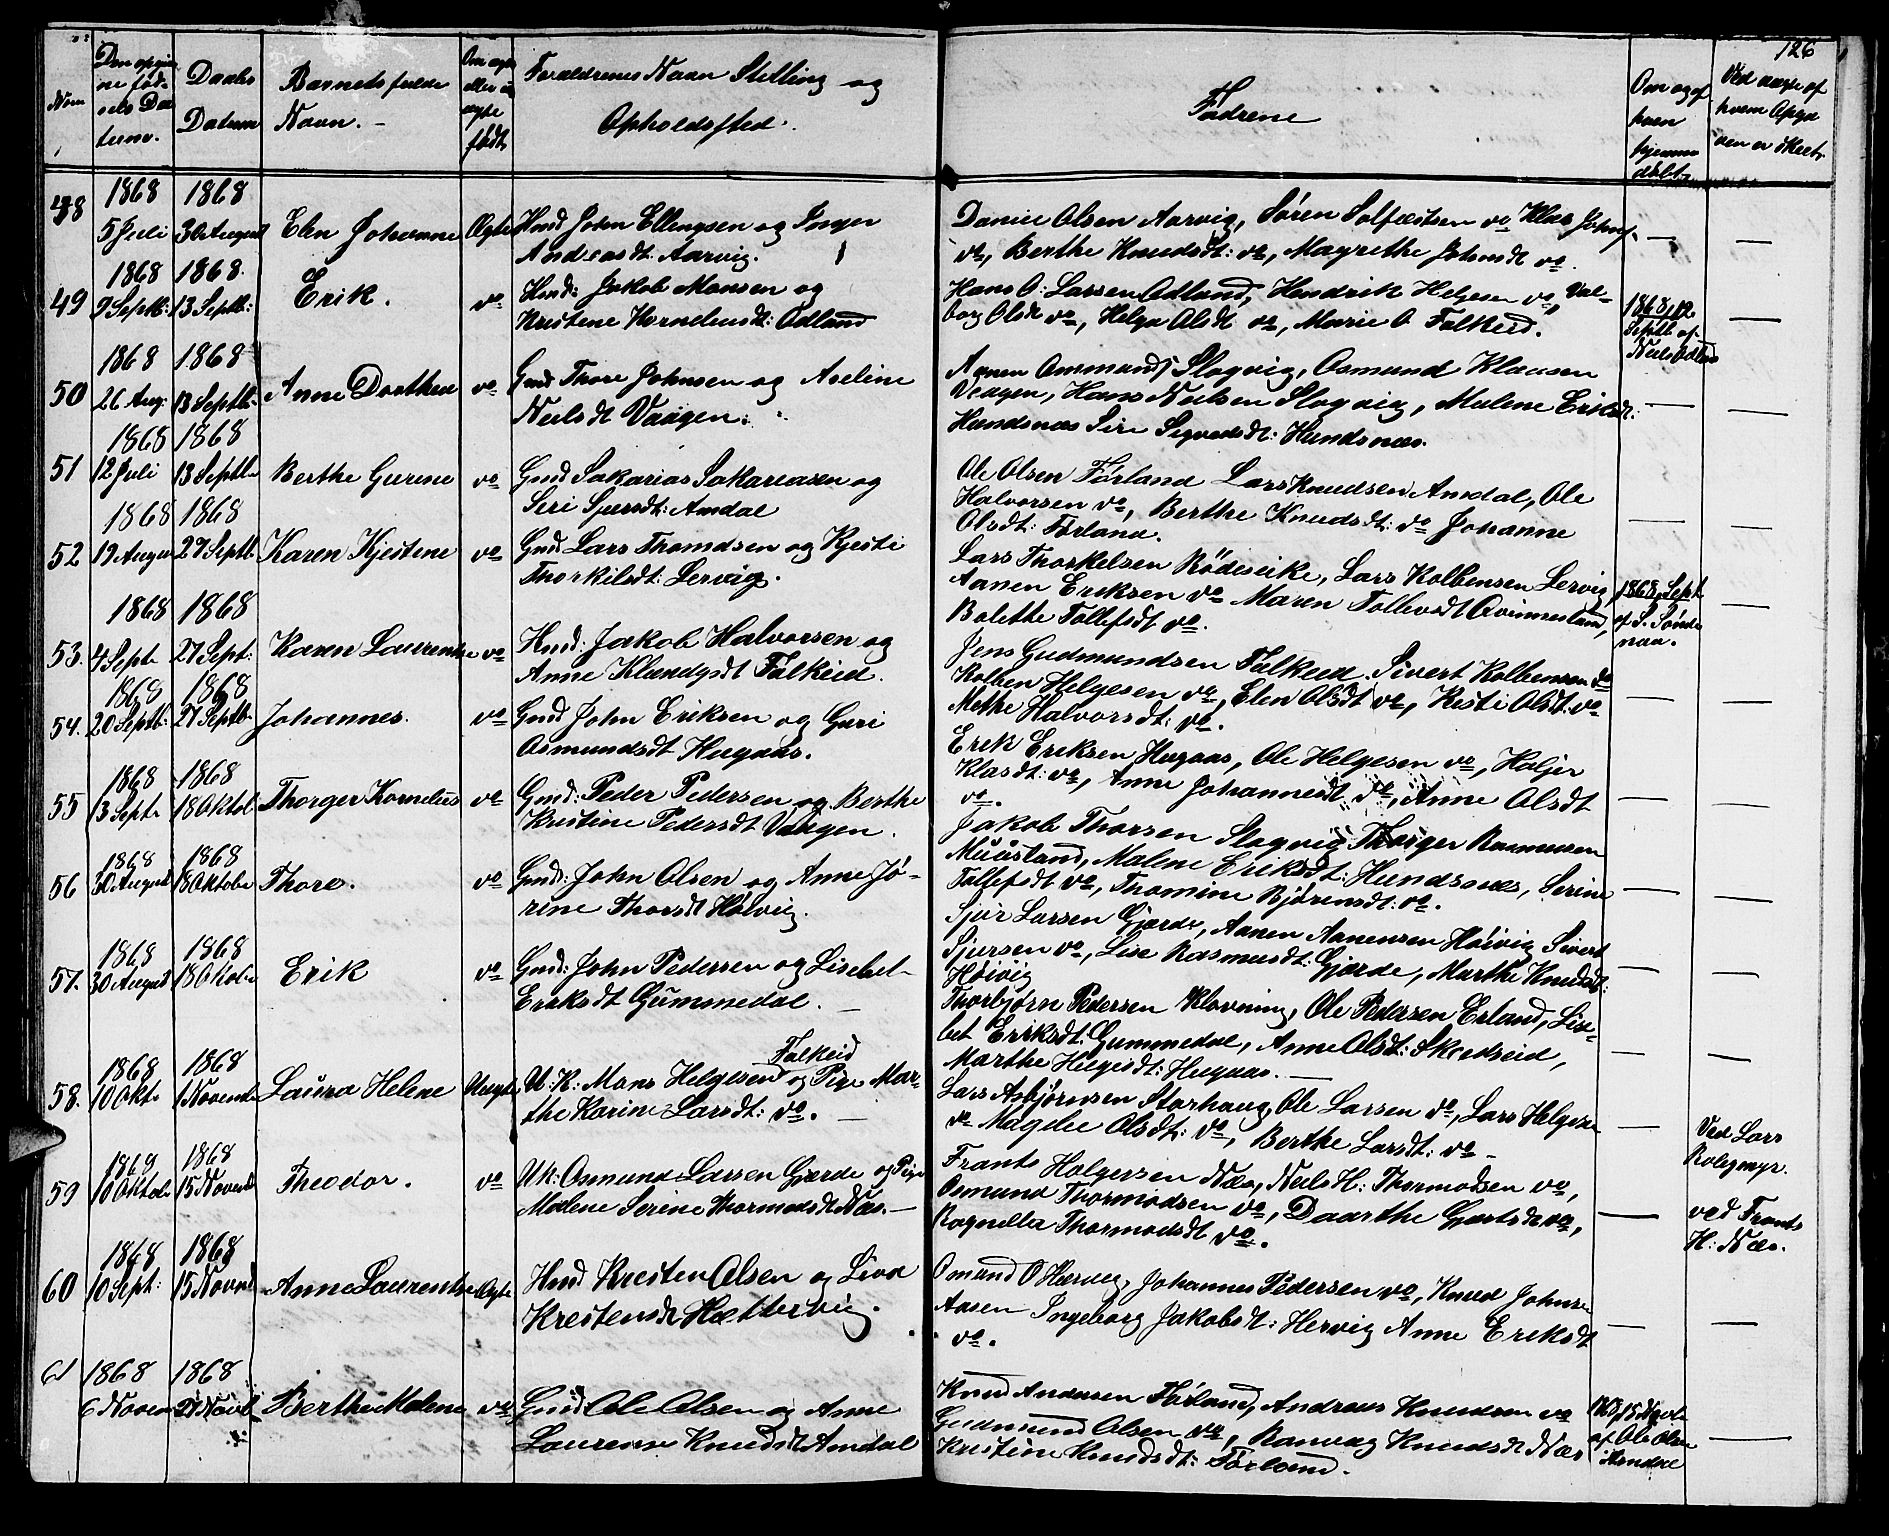 126
Num
Den opgiv
ne fød-
sels Da
tume.
Daabs
Datum
Barnets fulde
Navn. -
Om ægte
eller u
ægte
født
Foraldrenes Navn Stilling og
Opholdssted.
Fadrene
Om og af
hvem
hjemme
døbt
Ved uægte af
hvem Opga
ven er skeet.
48
1868
5 Juli
1868
30 August
Elen Johanne
Ægte
Hmd John Ellingsen og Inger
Andreasdt. Aarvig.
Daniel Olsen Aarvig, Søren Solfæstsen vo Klas Johns.
vo, Berthe Knudsdt: vo, Magrethe Johnsdt vo.
49
1868
9 Septb:
1868.
13 Septb:
Erik.
vo
Hmd: Jakob Monsen og
Kristene Korneliusdt: Odland
Hans O: Larsen Odland, Hendrik Helgesen vo, Val-
borg Olsdt vo, Helga Olsdt vo, Marie O Falkeid.
1868, 12
Septb af
Neils Odland
50
1868
26 Aug:
1868
13 Septb.
Anne Dorthea
vo
Gmd Thore Johnsen og Aseline
Neilsdt Vaagen.
Aanen Ommunds Slogvig, Osmund Klausen
Vaagen, Hans Neilsen Slogvig, Malene Eriksdt:
Hundsnæs Siri Sigvedsdt: Hundsnæs.
51
1868
12 Juli
1868
13 Septb
Berthe Gurine
vo
Gmd Sakarias Sakariasen og
Seri Sjursdt: Amdal
Ole Olsen Førland Lars Knudsen Amdal, Ole
Halvorsen vo, Berthe Knudsdt: vo Johanne
Olsdt: Førland.
52
1868
19 August
1868
27 Septb
Karen Kjestene
vo
Gmd Lars Thomdsen og Kjesti
Thorkilsdt: Lervig.
Lars Thorkelsen Rødseike, Lars Kolbensen Lervig,
Aanen Eriksen vo Maren Tollevsdt Qvinnesland,
Bolethe Tollefsdt vo.
1868, Sept
af S. Sønde
naa.
53.
1868
4 Septb
1868
27 Sept:
Karen Laurense
vo
Hmd: Jakob Halvorsen og
Anne Klandgsdt Falkeid.
Jens Gudmundsen Falkeid. Sivert Kolbensen vo
Kolben Helgesen vo, Elen Olsdt vo, Kisti Olsdt: vo
Methe Halvorsdt: vo.
54.
1868
20 Septb:
1868
27 Septb.
Johannes.
vo
Gmd John Eriksen og Guri
Osmundsdt Hugaas.
Erik Eriksen Hugaas, Ole Helgesen vo, Holjer
Klasdt: vo, Anne Johannesdt vo, Anne Olsdt
vo.
55
1868
13 Septb
1868
18 Oktob
Thorger Kornelius
vo
Gmd: Peder Pedersen og Berthe
Kristine Pedersdt Vaagen.
Jakob Thorsen Slogvig Thorger Rasmussen
Muusland, Malene Eriksdt: Hundsnes, Serine
Tollefsdt vo, Thomine Bjørensdt: vo.
56
1868
30 August
1868
18 Oktobr
Thore.
vo
Gmd: John Olsen og Anne Jø-
rine Thorsdt Høivig.
Sjur Larsen Gjerde, Aanen Aanensen Høivig Sivert
Sjursen vo, Lise Rasmusdt: Gjerde, Marthe Knudsdt:
Høivig
57.
1868
30 August
1868
18 Oktobr
Erik
vo
Gmd: John Pedersen og Lisebet
Eriksdt Gummedal. -
Thorbjørn Pedersen Klovning, Ole Pedersen Erland, Lise-
bet Eriksdt: Gummedal, Anne Olsdt: Skeidseid,
Marthe Helgesdt: Hugaas. -
58.
1868
10 Okt
1868
1 Novemb
Laura Helene
Uægte
U: K: Mons Helgesen Falkeid og Pige Mar-
the Karine Larsdt: vo. -
Lars Asbjørnsen Storhaug, Ole Larsen vo, Lars Helgese
vo Magele Olsdt: vo, Berthe Larsdt: vo -
Ved Lars
Rolegmyr.
59
1868
10 Oktob
1868
15 Novemb
Theodor.
vo
Uk: Osmund Larsen Gjerde og Pige
Malene Serine Thormodsdt Næs. -
Frants Holgersen Næs, Neils H: Thormodsen vo,
Osmund Thormodsen vo, Daarthe Gjertsdt vo,
Ragnilla Thormodsdt vo.
ved Frants
H: Næs.
60
1868
10 Sept:
1868
15 Novmb
Anne Laurentse
Ægte
Hmd Kresten Olsen og Liva
Krestensdt Hættervig.
Omund O Hervig, Johannes Pedersen vo, Knud Johnse
Aasen Ingeborg Jakobsdt: Hervig Anne Eriksdt
vo.
61
1868
6 Novem
1868
29 Novb
Berthe Malene
vo
Gmd Ole Olsen og Anne
Laurense Knudsdt Amdal
Knud Andersen Førland, Andreas Knudsen vo
Gudmund Olsen vo, Ranvag Knudsdt Næs
Kristine Knudsdt: Førland.
1868, 15 Novb
af Ole Olsen
Amdal